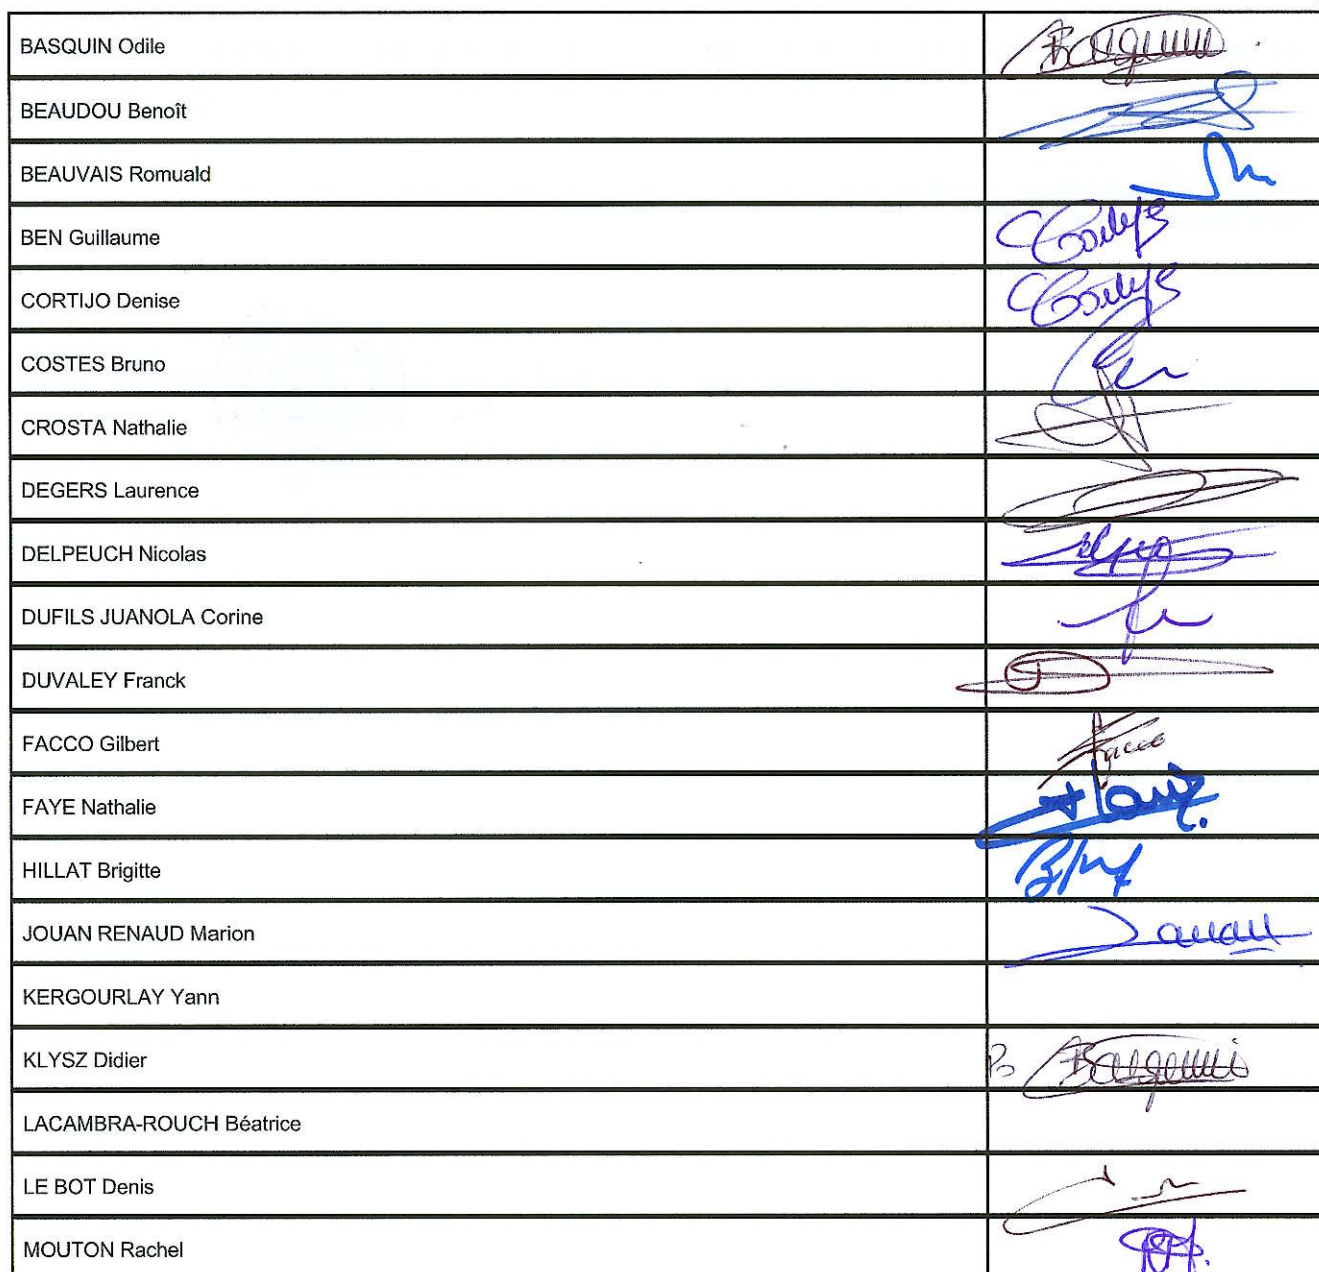 BASQUIN Odile Basquin
BEAUDOU Benoît
BEAUVAIS Romuald
BEN Guillaume
CORTIJO Denise
COSTES Bruno
CROSTA Nathalie
DEGERS Laurence
DELPEUCH Nicolas
DUFILS JUANOLA Corine
DUVALEY Franck
FACCO Gilbert Facco
FAYE Nathalie
HILLAT Brigitte
JOUAN RENAUD Marion Jouan
KERGOURLAY Yann
KLYSZ Didier Po Basquin
LACAMBRA-ROUCH Béatrice
LE BOT Denis
MOUTON Rachel